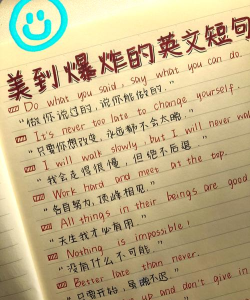 美到爆炸的英文短句
Do what you said, say what you can do.
“做你说过的,说你能做的.”
It's never too late to change yourself.
“只要你想改变,永远都不会太晚.”
I will walk slowly, but I will never wal
“我会走得很慢,但绝不后退”
Work hard and meet at the top.
“各自努力,顶峰相见”
All things in their beings are good
“天生我才必有用”
Nothing is impossible!
“没有什么不可能.”
Better late than never.
“只要开始,虽晚不迟”
up and don't give in